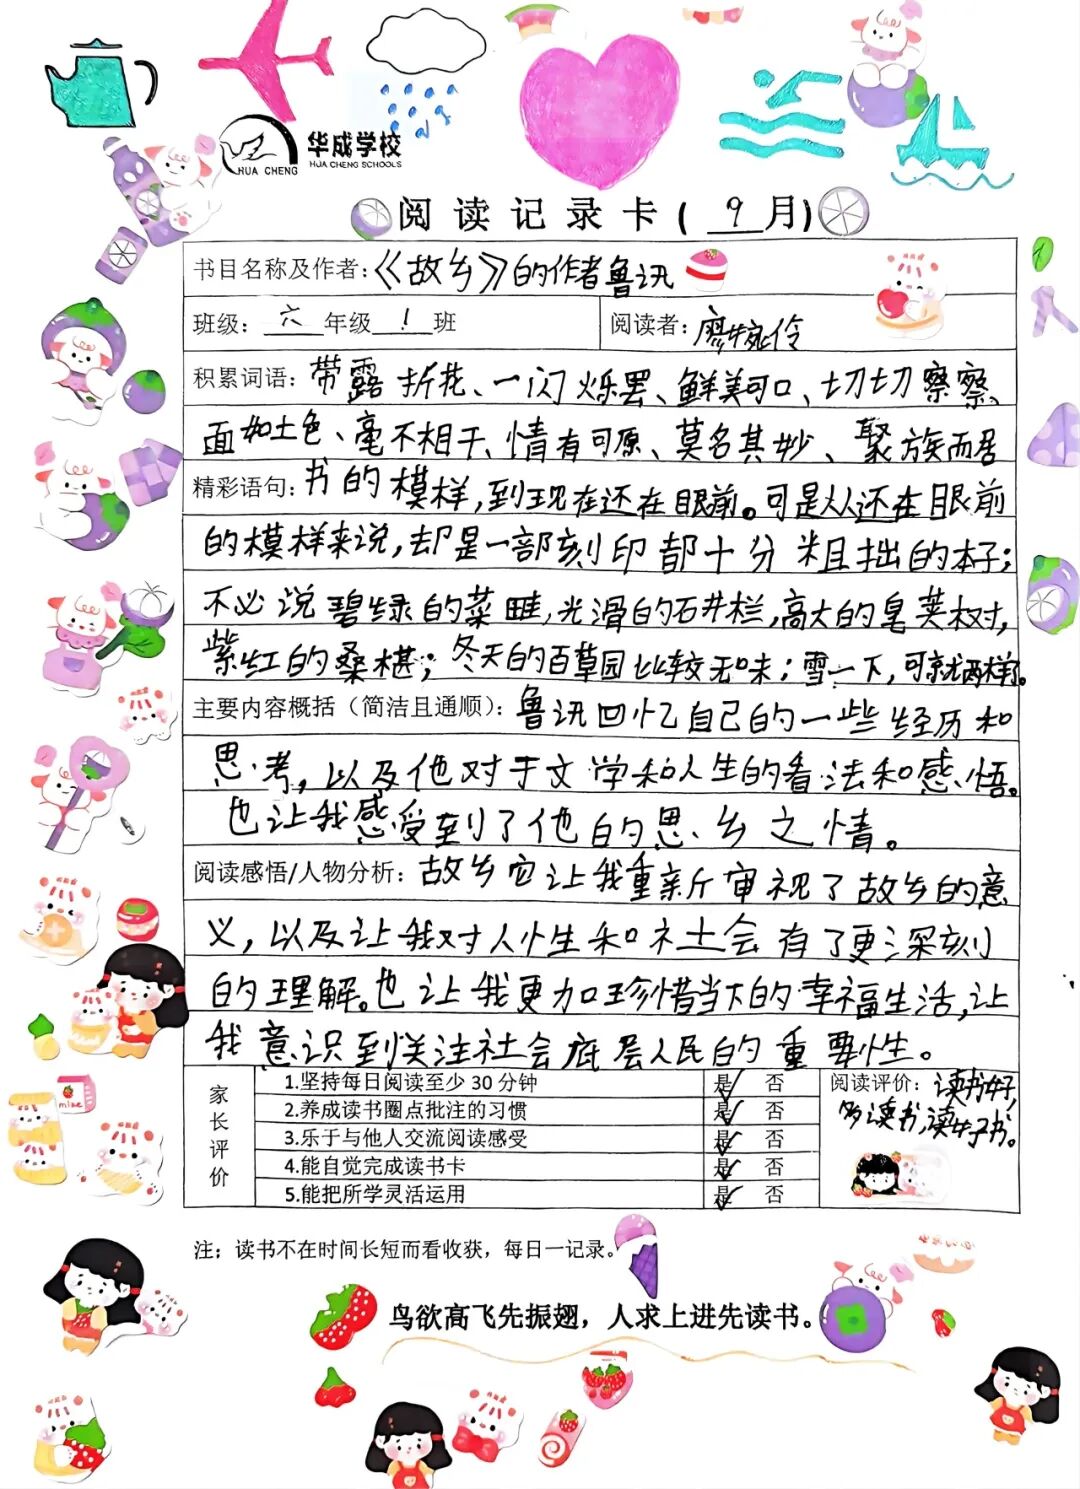 华成学校
HUA CHENG SCHOOLS
HUA CHENG
阅读记录卡( 9 月)
书目名称及作者:《故乡》的作者鲁讯
班级: 六 年级 1 班
阅读者: 廖婉伶
积累词语: 带露折花、一闪烁罢、鲜美可口、切切察察、
面如土色、毫不相干、情有可原、莫名其妙、聚族而居
精彩语句: 书的模样,到现在还在眼前。可是从还在眼前
的模样来说,却是一部刻印都十分粗拙的本子;
不必说碧绿的菜畦,光滑的石井栏,高大的皂荚树,
紫红的桑椹;冬天的百草园比较无味;雪一下,可就两样了。
主要内容概括(简洁且通顺): 鲁讯回忆自己的一些经历和
思考,以及他对于文学和人生的看法和感悟。
也让我感受到了他的思乡之情。
阅读感悟/人物分析: 故乡它让我重新审视了故乡的意
义,以及让我对人性和社会有了更深刻
的理解。也让我更加珍惜当下的幸福生活,让
我意识到关注社会底层人民的重要性。
家长评价
1.坚持每日阅读至少 30 分钟 是✓ 否
2.养成读书圈点批注的习惯 是✓ 否
3.乐于与他人交流阅读感受 是✓ 否
4.能自觉完成读书卡 是✓ 否
5.能把所学灵活运用 是✓ 否
阅读评价: 读书好,
多读书,读好书。
注:读书不在时间长短而看收获,每日一记录。
鸟欲高飞先振翅,人求上进先读书。